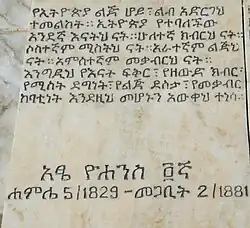 የኢትዮጵያ ልጅ ሆይ፣ ልብ አድርገህ
ተመልከት። ኢትዮጵያ የተባለችው
አንደኛ እናትህ ናት። ሁለተኛ ክብርህ ናት።
ሶስተኛም ሚስትህ ናት። አራተኛም ልጅህ
ናት። አምስተኛም መቃብርህ ናት።
እንግዲህ የእናት ፍቅር፣ የዘውድ ክብር
የሚስት ደግነት፣ የልጅ ደስታ፣ የመቃብር
ከባቲነት እንደዚህ መሆኑን አውቀህ ተነሳ።
አፄ ዮሐንስ ፬ኛ
ሐምሌ 5/1829 - መጋቢት 2/1881